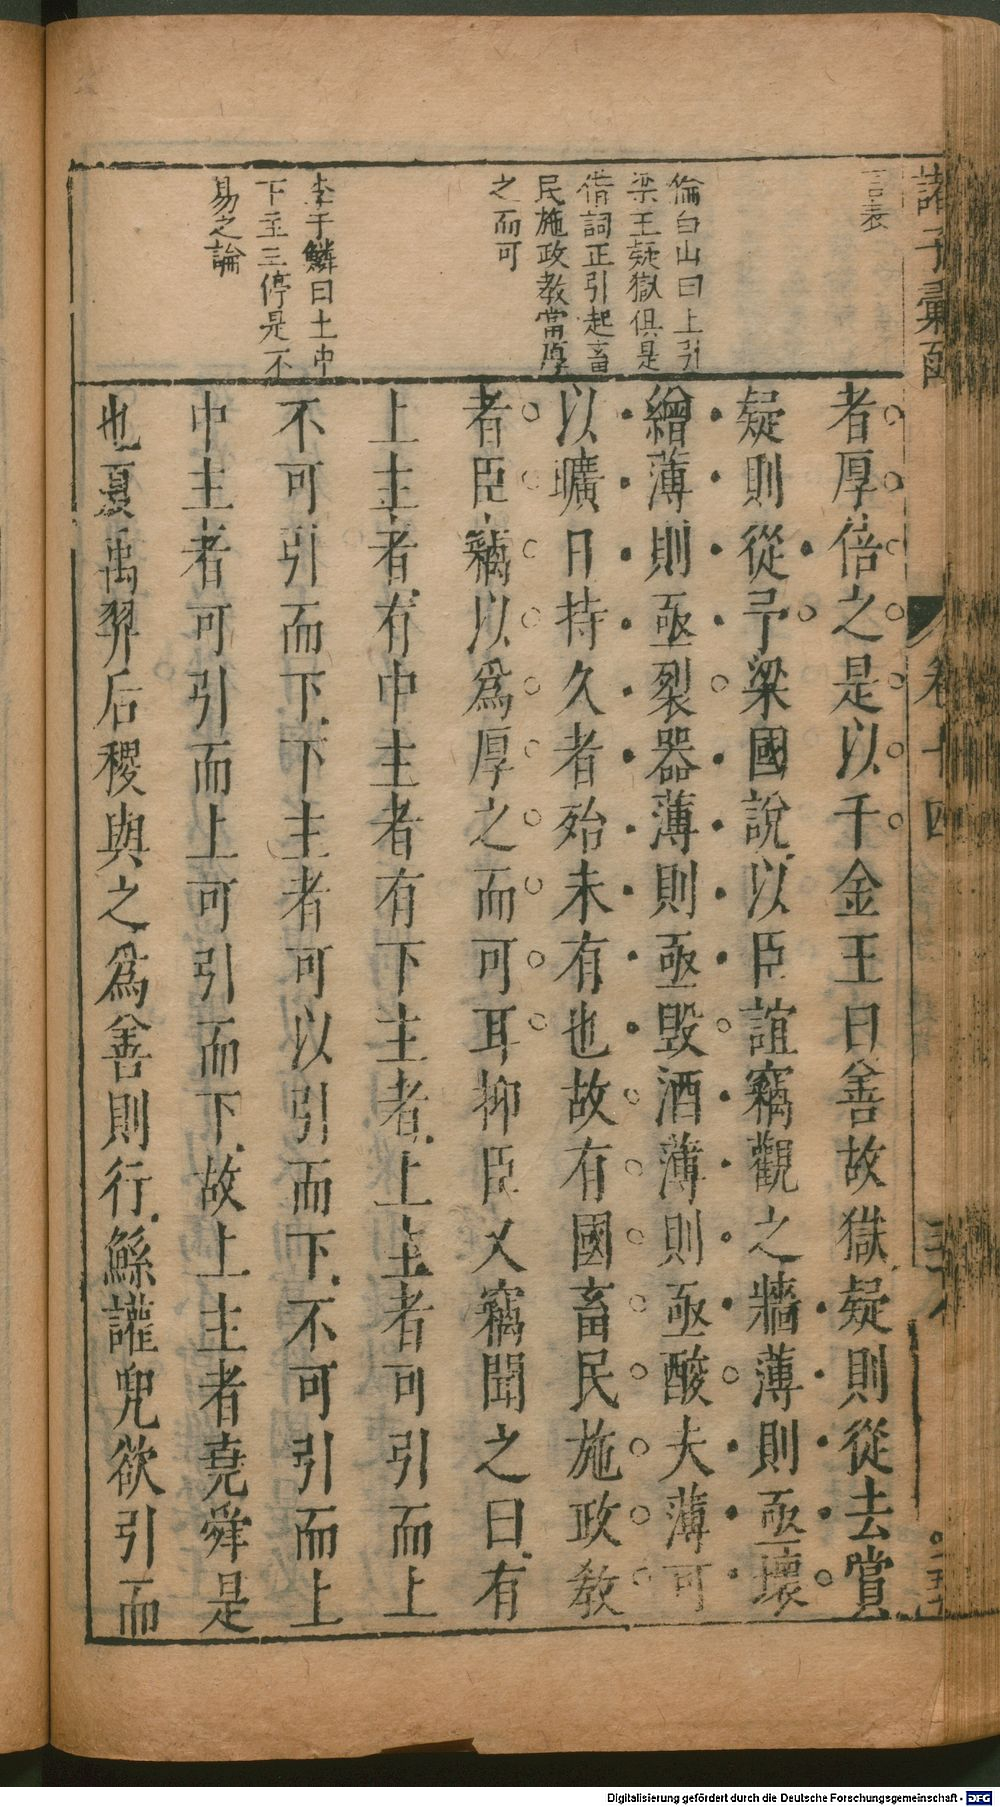 諸子彙函
卷十四
言表
倫白山曰上引
梁王疑獄俱是
借詞正引起畜
民施政教當厚
之而可
李于鱗曰上中
下至三停是不
易之論
者厚倍之是以千金王曰善故獄疑則從去賞
疑則從予梁國說以臣誼竊觀之牆薄則亟壞
繒薄則亟裂器薄則亟毀酒薄則亟酸夫薄可
以曠日持久者殆未有也故有國畜民施政教
者臣竊以爲厚之而可耳抑臣又竊聞之曰有
上主者有中主者有下主者上主者可引而上
不可引而下下主者可以引而下不可引而上
中主者可引而上可引而下故上主者堯舜是
也夏禹羿后稷與之爲善則行鯀讙兜欲引而
Digitalisierung gefördert durch die Deutsche Forschungsgemeinschaft - DFG